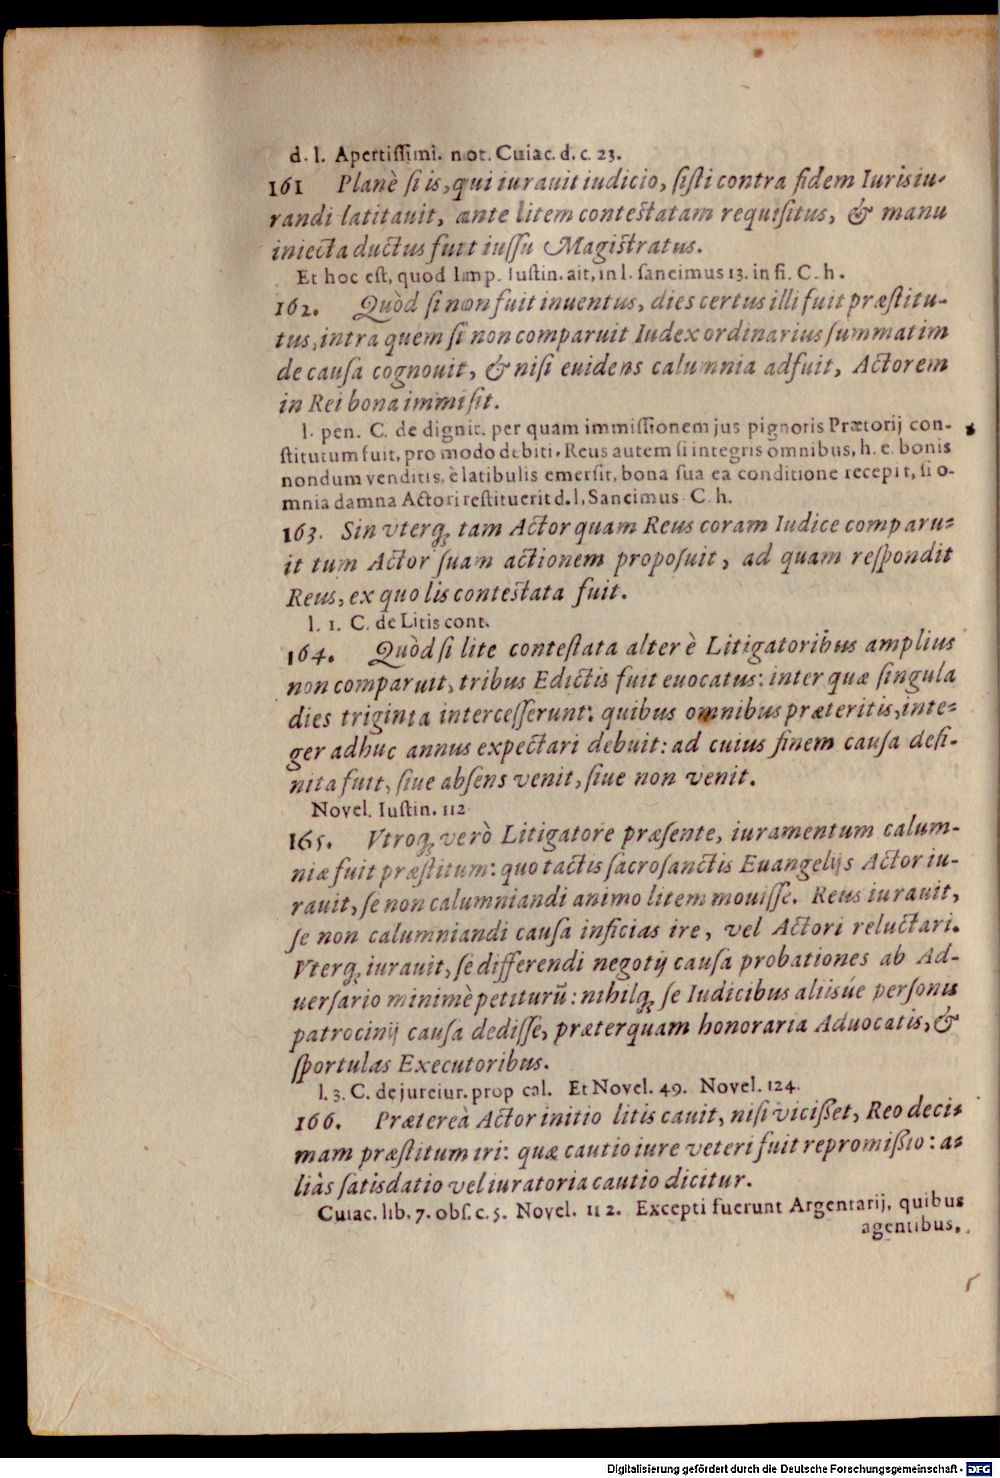 d. l. Apertiſſimi. not. Cuiac. d. c. 23.
161 Planè ſi is, qui iurauit iudicio, ſiſti contra fidem Iurisiu-
randi latitauit, ante litem conteſtatam requiſitus, & manu
iniecta ductus fuit iuſſu Magiſtratus.
Et hoc eſt, quod Imp. Iuſtin. ait, in l. ſancimus 13. in fi. C. h.
162. Quòd ſi non fuit inuentus, dies certus illi fuit præſtitu-
tus, intra quem ſi non comparuit Iudex ordinarius ſummatim
de cauſa cognouit, & niſi euidens calumnia adfuit, Actorem
in Rei bona immiſit.
l. pen. C. de dignit. per quam immiſſionem jus pignoris Prætorij con-
ſtitutum fuit, pro modo debiti. Reus autem ſi integris omnibus, h. e. bonis
nondum venditis, è latibulis emerſit, bona ſua ea conditione recepit, ſi o-
mnia damna Actori reſtituerit d. l, Sancimus C. h.
163. Sin vterq; tam Actor quam Reus coram Iudice comparu-
it tum Actor ſuam actionem propoſuit, ad quam reſpondit
Reus, ex quo lis conteſtata fuit.
l. 1. C. de Litis cont.
164. Quòd ſi lite conteſtata alter è Litigatoribus amplius
non comparuit, tribus Edictis fuit euocatus: inter quæ ſingula
dies triginta interceſſerunt: quibus omnibus præteritis, inte-
ger adhuc annus expectari debuit: ad cuius finem cauſa defi-
nita fuit, ſiue abſens venit, ſiue non venit.
Novel. Iuſtin. 112
165. Vtroq; verò Litigatore præſente, iuramentum calum-
niæ fuit præſtitum: quo tactis ſacroſanctis Euangelijs Actor iu-
rauit, ſe non calumniandi animo litem mouiſſe. Reus iurauit,
ſe non calumniandi cauſa inficias ire, vel Actori reluctari.
Vterq; iurauit, ſe differendi negotij cauſa probationes ab Ad-
uerſario minimè petiturũ: nihilq; ſe Iudicibus aliisúe perſonis
patrocinij cauſa dediſſe, præterquam honoraria Aduocatis, &
ſportulas Executoribus.
l. 3. C. de jureiur. prop cal. Et Novel. 49. Novel. 124.
166. Prætereà Actor initio litis cauit, niſi viciſſet, Reo deci-
mam præſtitum iri: quæ cautio iure veteri fuit repromiſſio: a-
liàs ſatisdatio vel iuratoria cautio dicitur.
Cuiac. lib. 7. obſ. c. 5. Novel. 112. Excepti fuerunt Argentarij, quibus
agentibus,
Digitalisierung gefördert durch die Deutsche Forschungsgemeinschaft - DFG